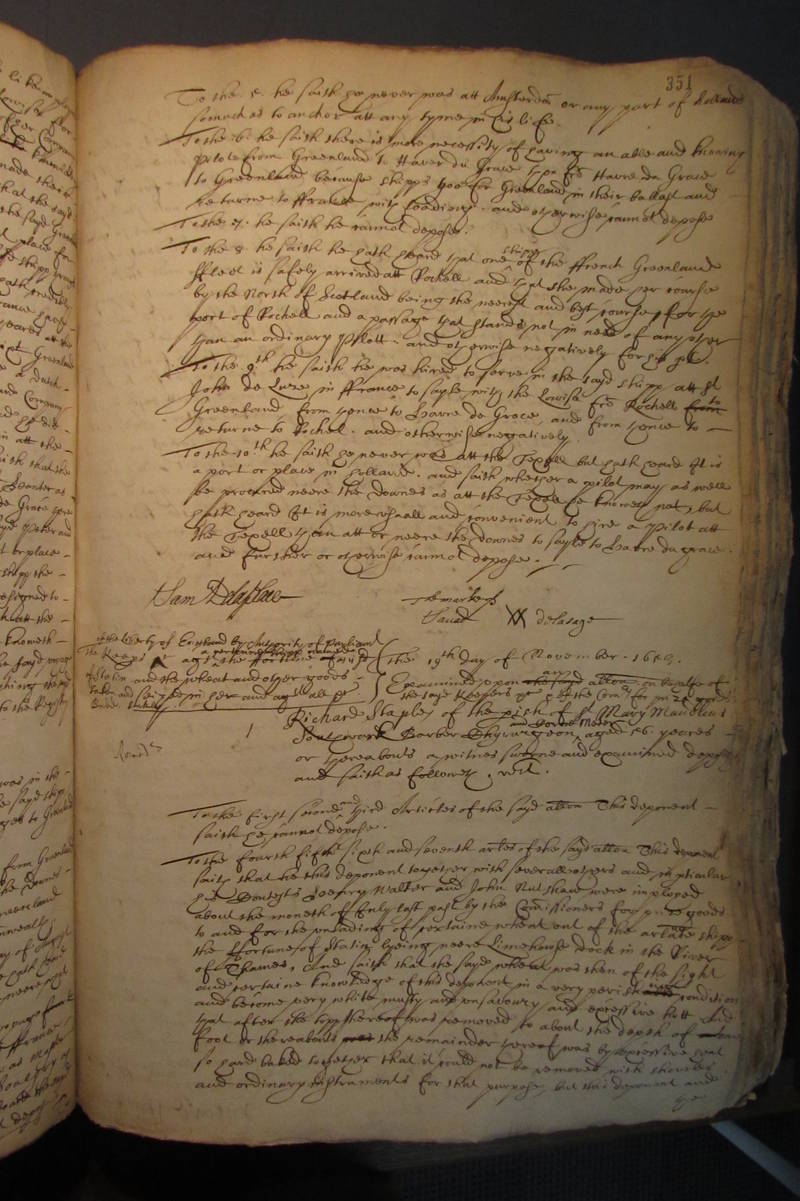 351
To the 5. he saith he never was att Amsterdam or any port of Holland
somuch as to anchor att any tyme in his life.
To the 6. he saith there is more necessity of having an able and knowing
Pilote from Greenland to Haver du Grace than from Havre de Grace
to Greenland because shipps goe for Greenland in their ballast and
returne to ffrance with loading. and otherwise cannot depose
To the 7. he saith he cannot depose.
To the 8. he saith he hath heard that one shipp of the ffrench Greenland
ffleet is safely arrived att Rochell and that she made her course
by the North of Scotland being the neerest and best course for the
port of Rochell and a passage that stands not in need of any other
than an ordinary Pilott. and otherwise negatively for his part.
To the 9th he saith he was hired to serve in the sayd shipp att St
John de Luze in ffrance to sayle with the Lowise from Rochell to
Greenland, from thence to Havre de Grace, and from thence to
returne to Rochel. and otherwise negatively.
To the 10th he saith he never was att the Texell but hath heard it is
a port or place in Holland. and saith whether a pilot may as well
be procured neere the Downes as att the Texell he knoweth not, but
hath heard it is more usuall and convenient to hire a Pilot att
the Texell than att or neere the Downes to sayle to Havre du grace.
and further or otherwise cannot depose.
The marke of
Sam Delaplace
XX delasage
of the liberty of England by Authority of Parliament
the Keepers
agt the ffortune of
and the wheat and other goods
taken and seized in her and agst all &c
The 19th day of November. 1659.
Examined upon an allon on behalfe of
the sayd Keepers
1
Richard Staples of the pish of St Mary Maudlins
Southwark Barber Chyrurgeon, aged 56. yeares
or thereabouts a witnes sworne and examined deposeth
and saith as followeth. vizt.
To the first second and third Articles of the sayd allon This deponent
saith he cannot depose.
To the fourth fifth sixth and seventh arles of the sayd allon This deponent
saith that he this deponent together with severall others and in pticular
his Contests Jeoffery Walter and John Nutshaw were imployed
about the moneth of July last past by the Comissioners for prize goods
to and for the unlading of certaine wheat out of the arlate shipp
the ffortune of Statin lyeing neere Limehouse dock in the River
of Thames, And saith that the sayd wheat was then of the sight
and certaine knowledge of this deponent in a very perished condition
and become very white musty and unsavoury and excessive hott And
that after the topp thereof was removed to about the depth of
foot or thereabouts the remainder thereof was by excessive heat
so hard baked together that it could not be removed with shovells
and ordinary instruments for that purpose, but this deponent and